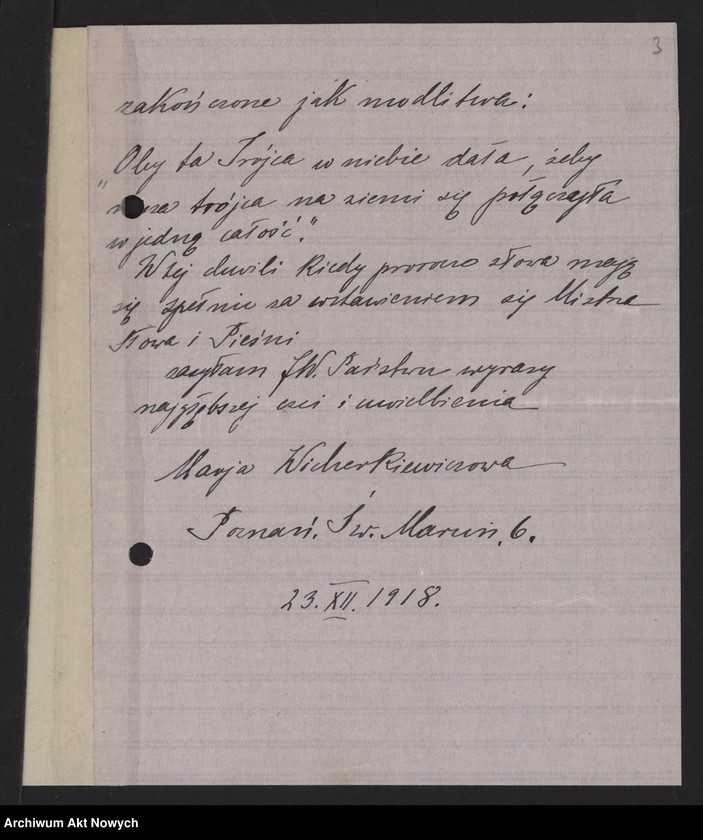 3
zakończone jak modlitwa:
"Oby ta Trójca w niebie dała, żeby
nasza trójca na ziemi się połączyła
w jedną całość."
W tej chwili kiedy prorocze słowa mają
się spełnić za wstawieniem się Mistrza
Słowa i Pieśni
zasyłam JW. Państwu wyrazy
najgłębszej czci i uwielbienia
Marja Wicherkiewiczowa
Poznań. Św. Marcin. 6.
23. XII. 1918.
Archiwum Akt Nowych